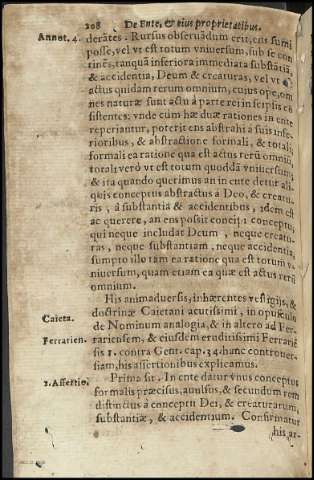 208 De Ente, & eius proprietatibus.
Annot. 4. derātes. Rursus obseruādum erit, ens sumi
posse, vel vt est totum vniuersum, sub se con
tinēs, tanquā inferiora immediata substātiā,
& accidentia, Deum & creaturas, vel vt
actus quidam rerum omnium, cuius ope, om
nes naturæ sunt actu à parte rei in seipsis cō
sistentes: vnde cùm hæ duæ rationes in ente
reperiantur, poterit ens abstrahi à suis infe-
rioribus, & abstractione formali, & totali,
formali ea ratione qua est actus rerū omniū,
totali verò vt est totum quoddā vniuersum,
& ita quando querimus an in ente detur ali-
quis conceptus abstractus à Deo, & creatu-
ris, à substantia & accidentibus, idem est
ac querere, an ens possit concipi conceptu,
qui neque includat Deum, neque creatu-
ras, neque substantiam, neque accidentia,
sumpto illo tam ea ratione qua est totum v-
niuersum, quam etiam ea qua est actus rerū
omnium.
His animaduersis, inhærentes vestigijs, &
Caieta. doctrinæ Caietani acutissimi, in opusculo
de Nominum analogia, & in altero ad Fer-
Ferrarien. rariensem, & eiusdem eruditissimi Ferrariē
sis 1. contra Gent. cap. 34. hanc controuer-
siam, his assertionibus explicamus.
1. Assertio. Prima sit. In ente datur vnus conceptus
formalis præcisus, auulsus, & secundum rem
distinctus à conceptu Dei, & creaturarum,
substantiæ, & accidentium. Confirmatur
his ar-